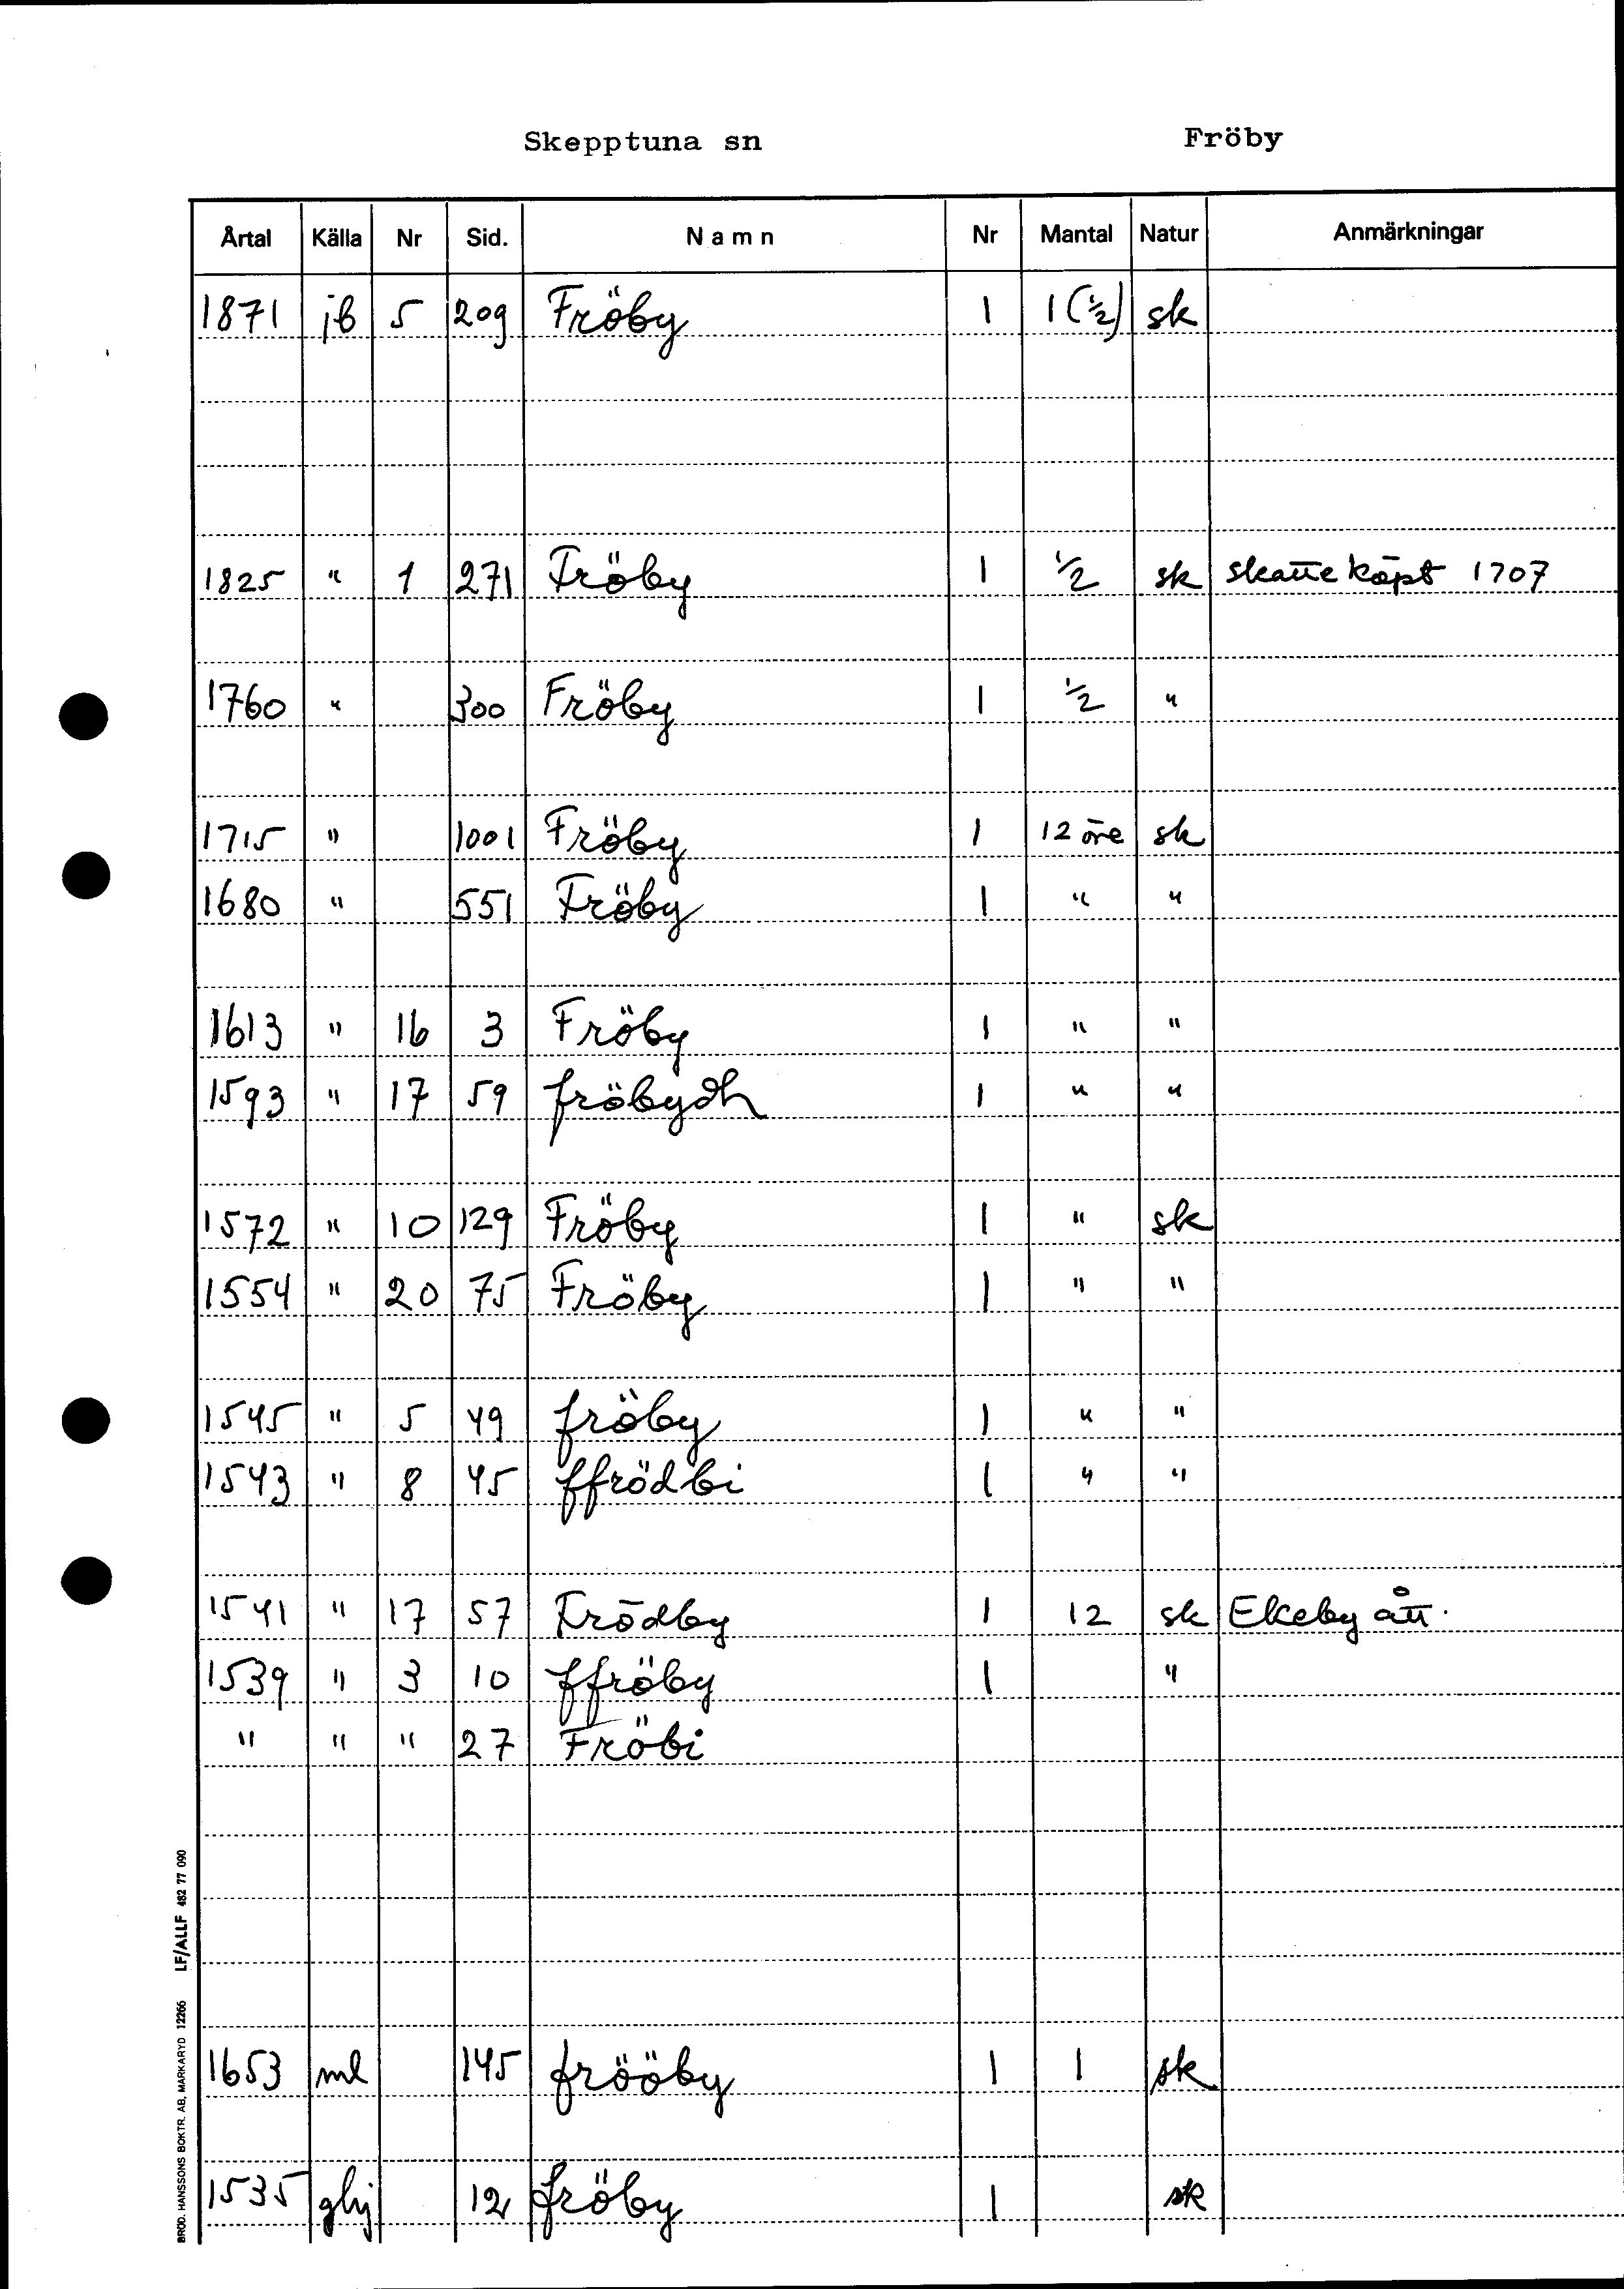 Skepptuna sn Fröby
Årtal Källa Nr Sid. Namn Nr Mantal Natur Anmärkningar
1871 jb 5 209 Fröby 1 1 (1/2) sk
1825 " 1 271 Fröby 1 1/2 sk skatteköpt 1707
1760 " 300 Fröby 1 1/2 "
1715 " 1001 Fröby 1 12 öre sk
1680 " 551 Fröby 1 " "
1613 " 16 3 Fröby 1 " "
1593 " 17 59 fröbydh 1 " "
1572 " 10 129 Fröby 1 " sk
1554 " 20 75 Fröby 1 " "
1545 " 5 49 fröby 1 " "
1543 " 8 45 ffrödbi 1 " "
1541 " 17 57 Frödby 1 12 sk Ekeby ått.
1539 " 3 10 ffröby 1 "
" " " 27 Fröbi
1653 ml 145 frööby 1 1 sk
1535 ghj 12 fröby 1 sk
BROD. HANSSONS BOKTR. AB, MARKARYD 12266 LF/ALLF 482 77 090